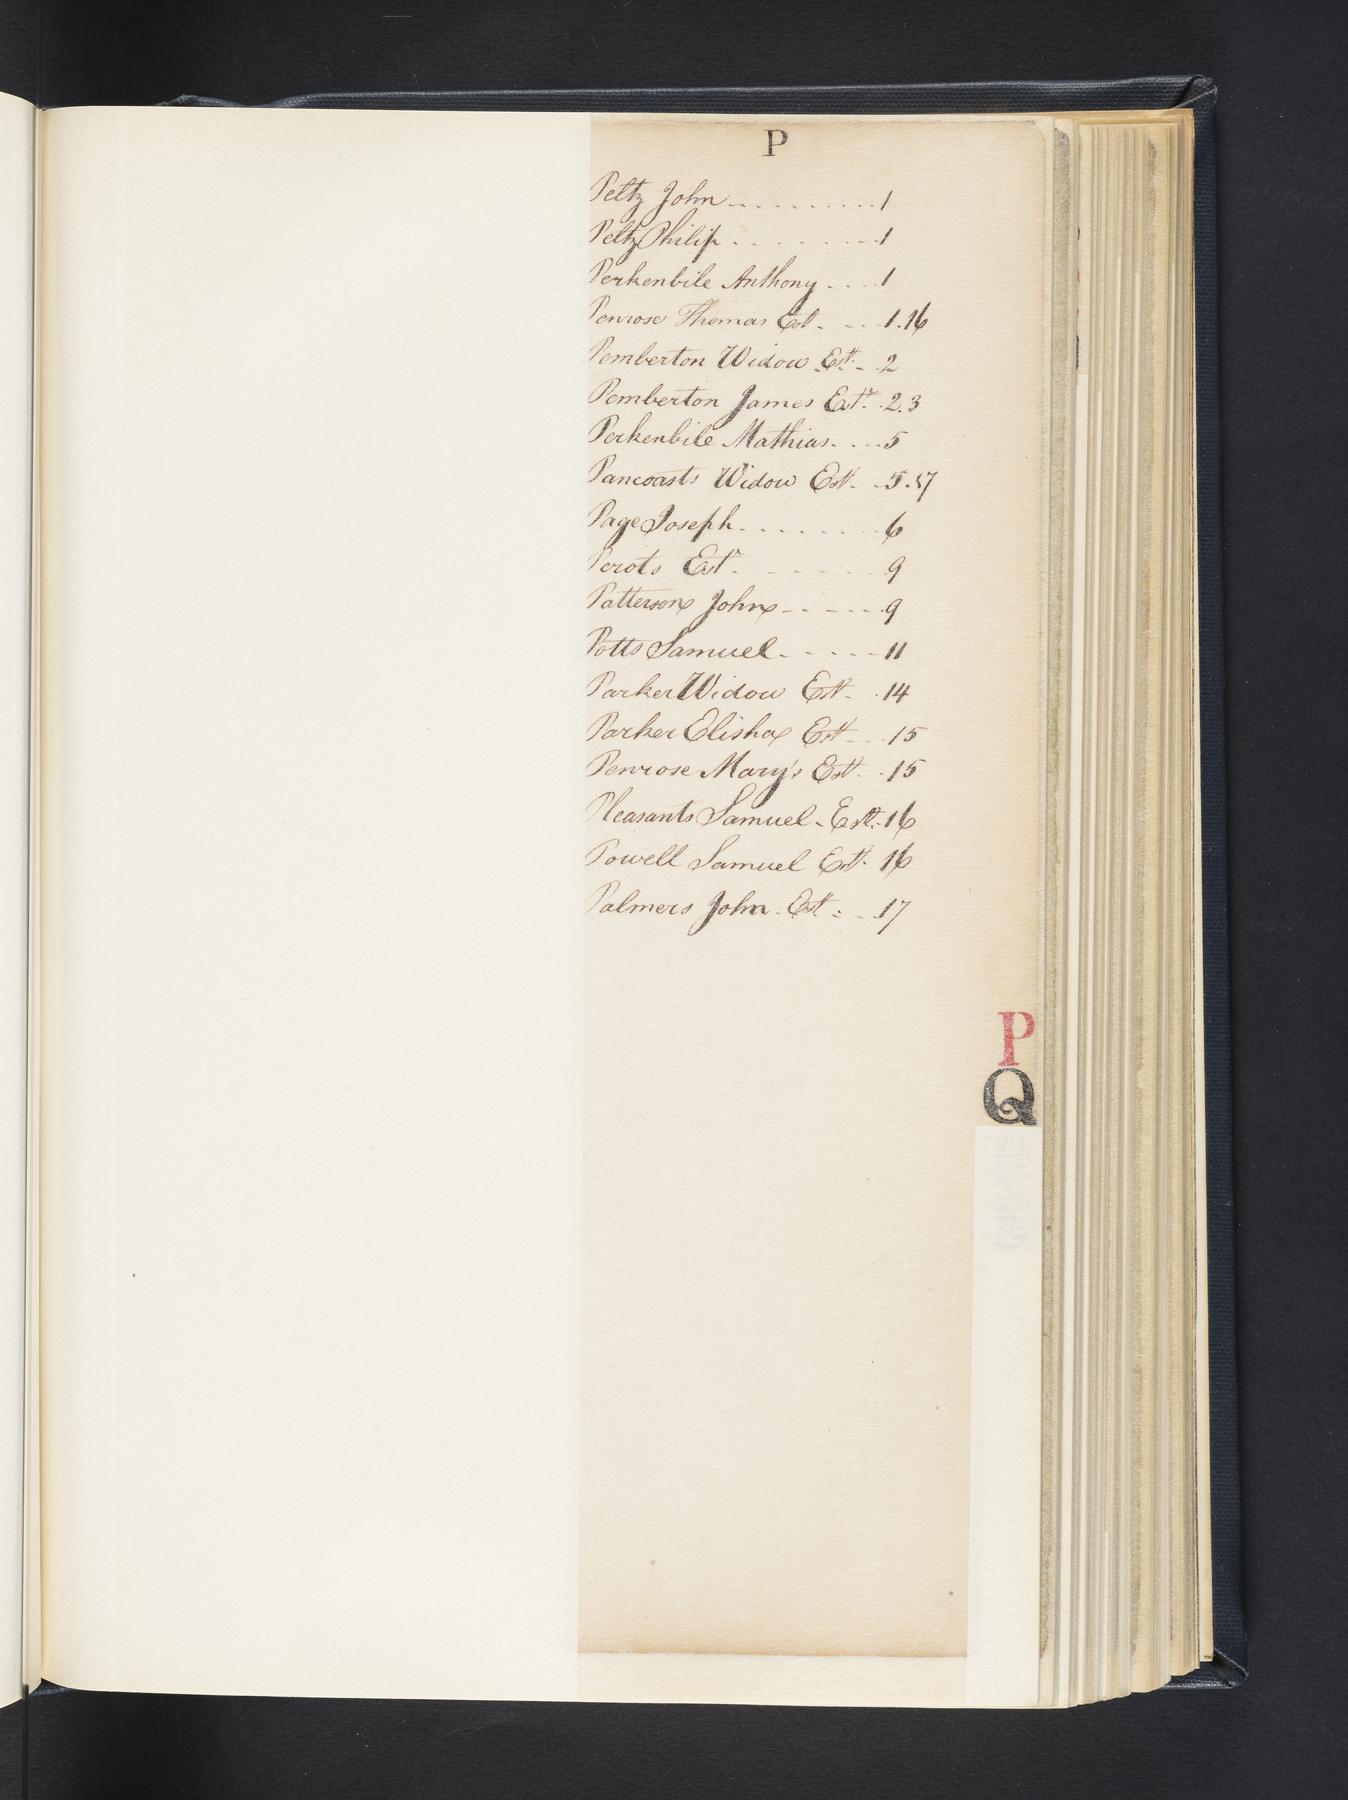 P
Peltz John - - - - - - - - - - 1
Peltz Philip - - - - - - - - - 1
Perkenbile Anthony - - - - 1
Penrose Thomas Est. - - - 1.16
Pemberton Widow Estt. - 2
Pemberton James Estt. - 2.3
Perkenbile Mathias - - - - 5
Pancoasts Widow Estt. - 5.17
Page Joseph - - - - - - - - 6
Perots Estt. - - - - - - 9
Patterson John - - - - - - 9
Potts Samuel - - - - - 11
Parker Widow Estt. - 14
Parker Elisha Estt. - - 15
Penrose Mary's Estt. - 15
Pleasants Samuel - Estt. - 16
Powell Samuel Estt. 16
Palmers John. Estt. - - 17
P
Q